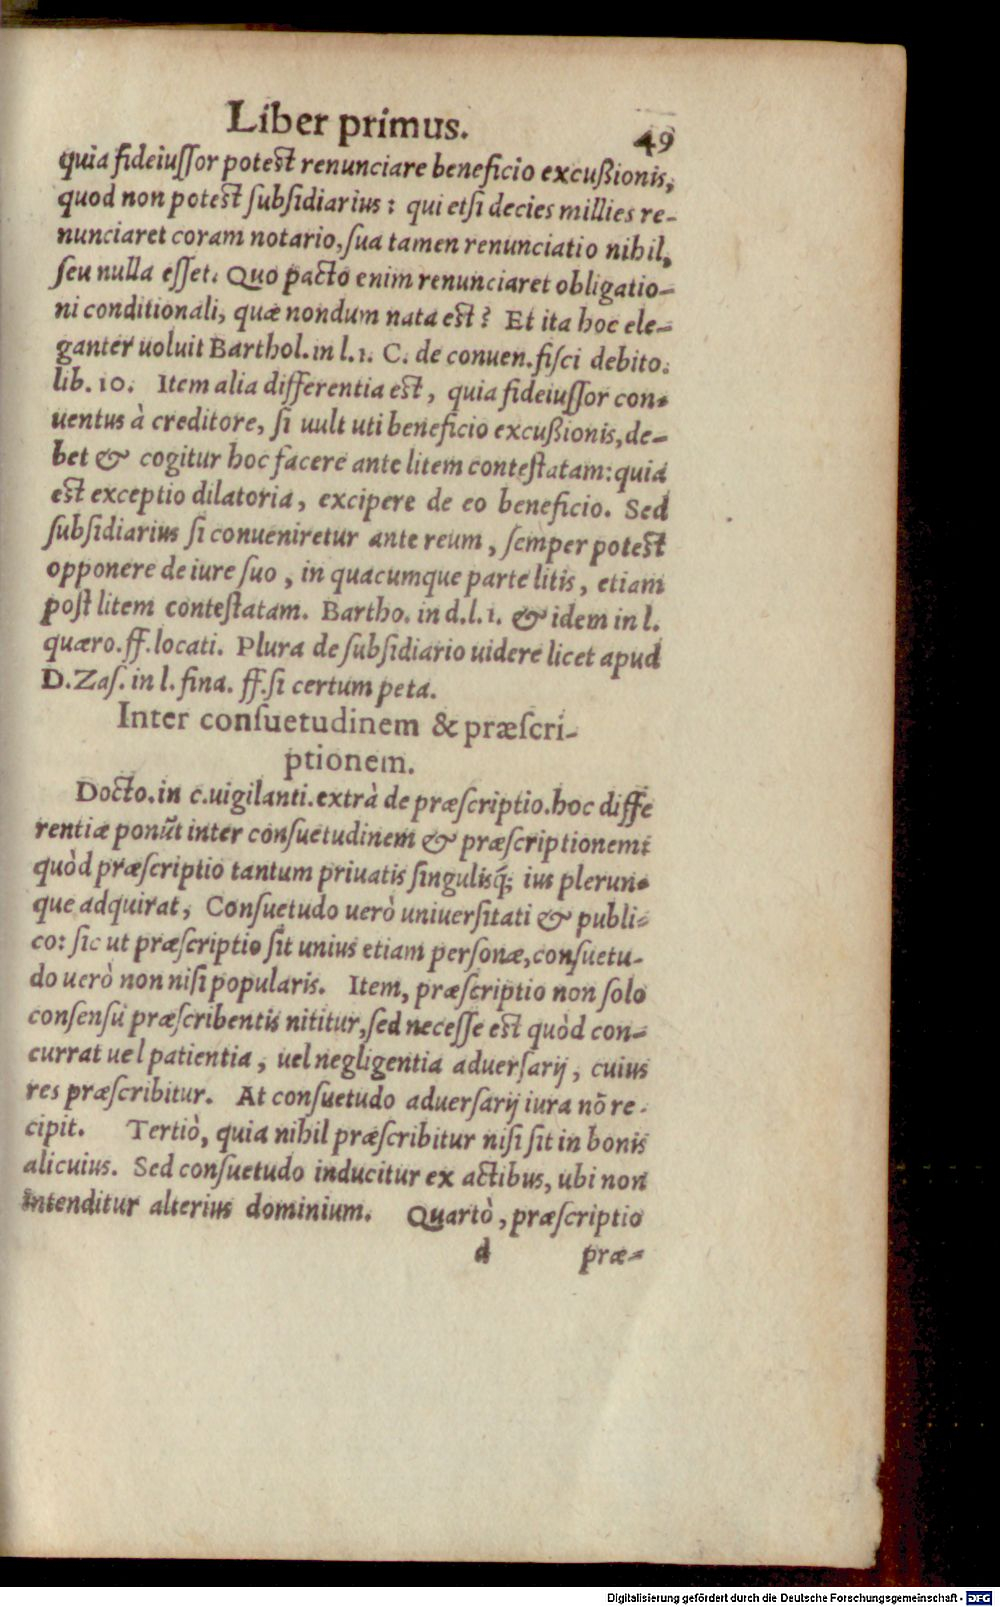 Liber primus. 49
quia fideiuſſor poteſt renunciare beneficio excußionis,
quod non poteſt ſubſidiarius: qui etſi decies millies re-
nunciaret coram notario, ſua tamen renunciatio nihil,
ſeu nulla eſſet. Quo pacto enim renunciaret obligatio-
ni conditionali, quæ nondum nata eſt? Et ita hoc ele-
ganter uoluit Barthol. in l. 1. C. de conuen. fiſci debito.
lib. 10. Item alia differentia eſt, quia fideiuſſor con-
uentus à creditore, ſi uult uti beneficio excußionis, de-
bet & cogitur hoc facere ante litem conteſtatam: quia
eſt exceptio dilatoria, excipere de eo beneficio. Sed
ſubſidiarius ſi conueniretur ante reum, ſemper poteſt
opponere de iure ſuo, in quacumque parte litis, etiam
poſt litem conteſtatam. Bartho. in d. l. 1. & idem in l.
quæro. ff. locati. Plura de ſubſidiario uidere licet apud
D. Zaſ. in l. fina. ff. ſi certum peta.
Inter conſuetudinem & præſcri-
ptionem.
Docto. in c. uigilanti. extrà de præſcriptio. hoc diffe
rentiæ ponūt inter conſuetudinem & præſcriptionem:
quòd præſcriptio tantum priuatis ſingulisq́; ius plerun-
que adquirat, Conſuetudo uerò uniuerſitati & publi-
co: ſic ut præſcriptio ſit unius etiam perſonæ, conſuetu-
do uerò non niſi popularis. Item, præſcriptio non ſolo
conſenſu præſcribentis nititur, ſed neceſſe eſt quòd con-
currat uel patientia, uel negligentia aduerſarij, cuius
res præſcribitur. At conſuetudo aduerſarij iura nō re-
cipit. Tertiò, quia nihil præſcribitur niſi ſit in bonis
alicuius. Sed conſuetudo inducitur ex actibus, ubi non
intenditur alterius dominium. Quartò, præſcriptio
d præ-
Digitalisierung gefördert durch die Deutsche Forschungsgemeinschaft - DFG